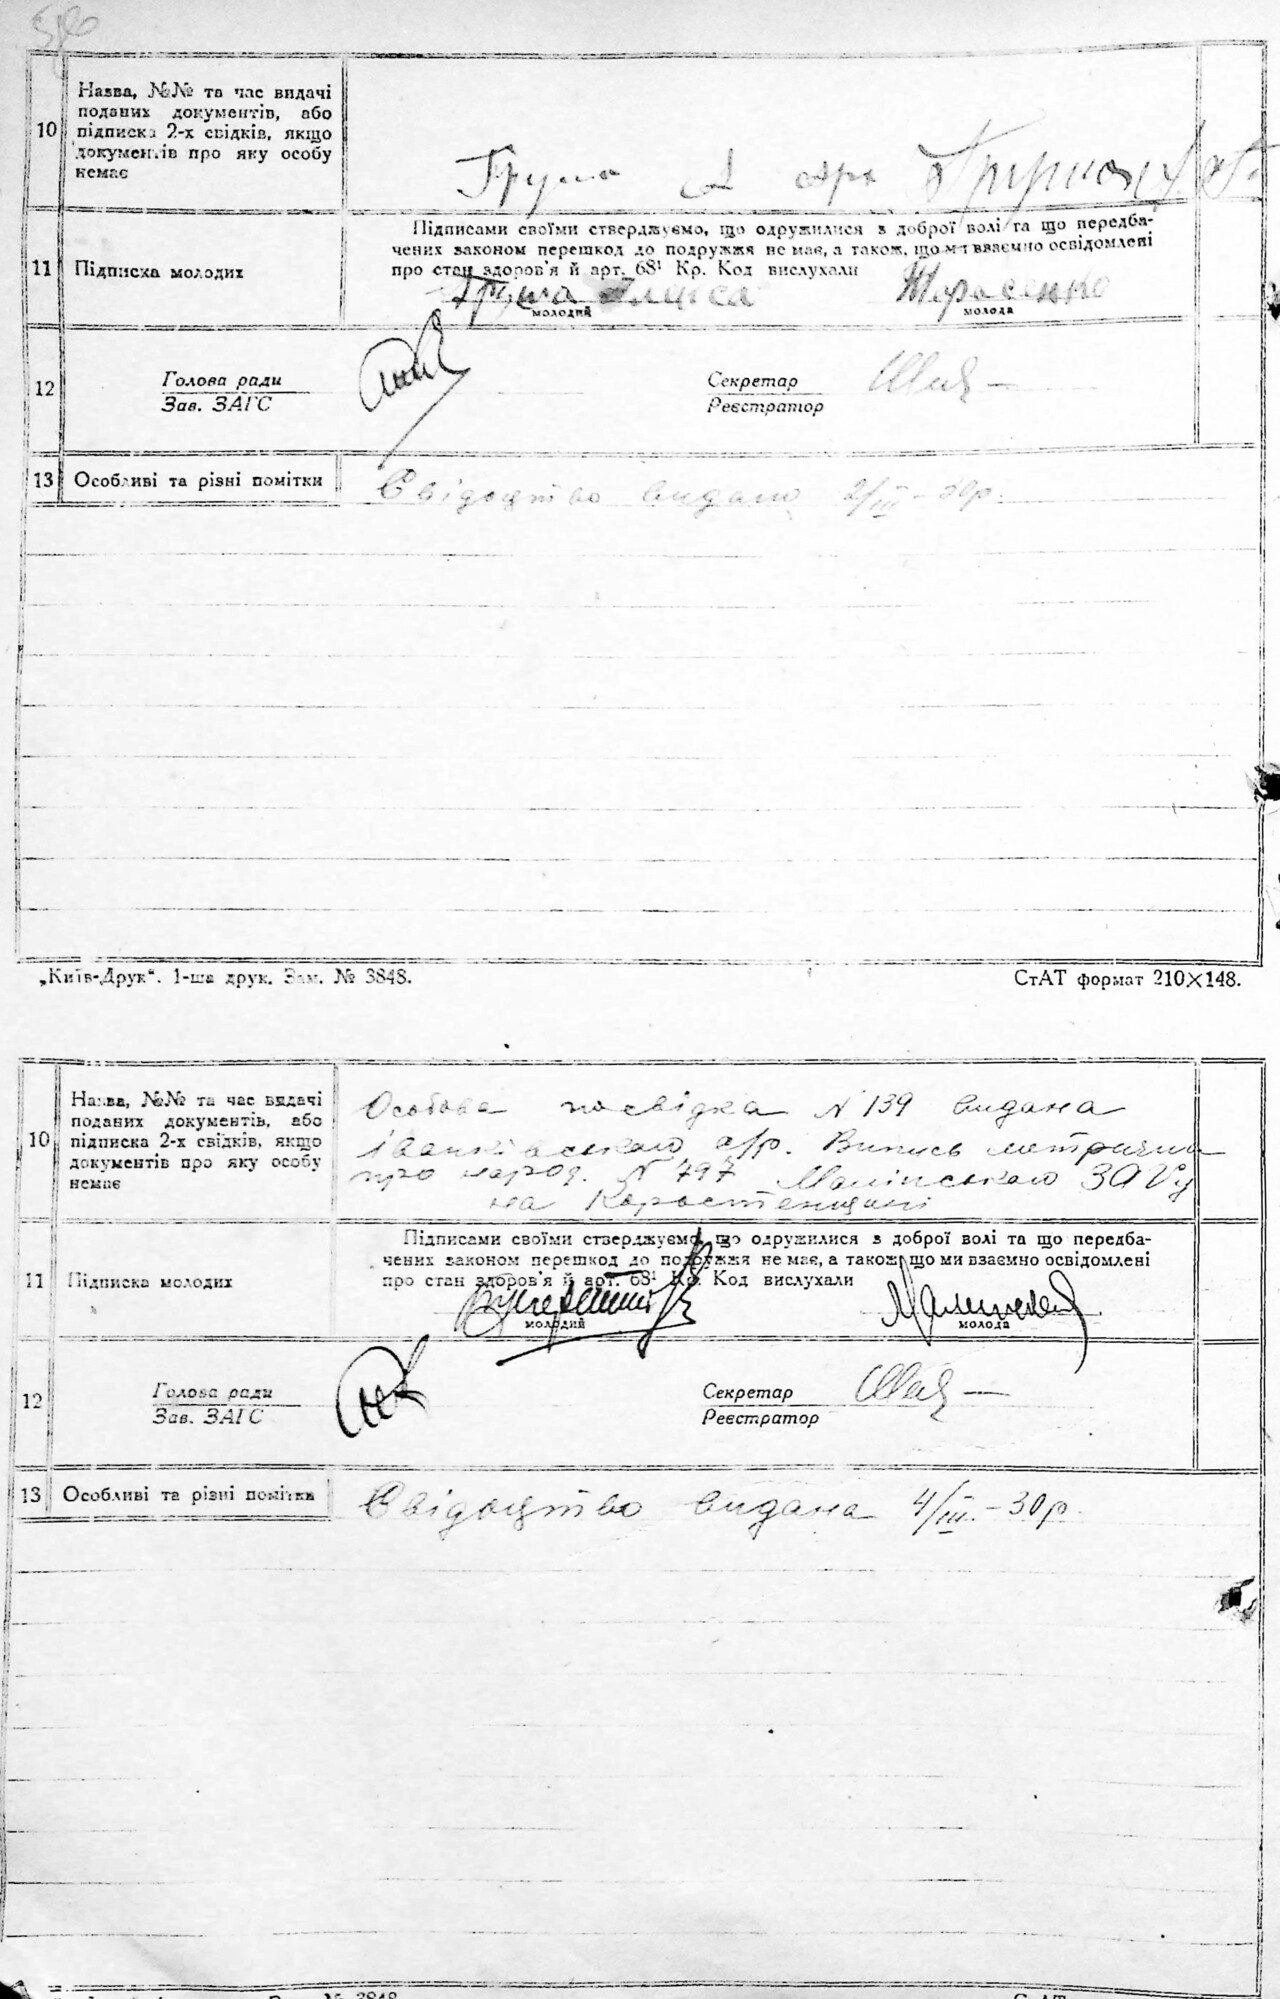 10
Назва, №№ та час видачі
поданих документів, або
підписка 2-х свідків, якщо
документів про яку особу
немає
Груша А
11
Підписка молодих
Підписами своїми стверджуємо, що одружилися з доброї волі та що передба-
чених законом перешкод до подружжя не має, а також, що ми взаємно освідомлені
про стан здоров'я й арт. 68¹ Кр. Код вислухали
Груша Тарасенко
молодий молода
12
Голова ради
Зав. ЗАГС
Секретар
Реєстратор
13
Особливі та різні помітки
Свідоцтво видано 2/III – 30р.
„Київ-Друк“. 1-ша друк. Зам. № 3848. СтАТ формат 210×148.
10
Назва, №№ та час видачі
поданих документів, або
підписка 2-х свідків, якщо
документів про яку особу
немає
Особова посвідка N 139 видана
Іванківською с/р. Випись метрична
про народ. N 797 Малінського ЗАГСу
на Коростенщині
11
Підписка молодих
Підписами своїми стверджуємо, що одружилися з доброї волі та що передба-
чених законом перешкод до подружжя не має, а також, що ми взаємно освідомлені
про стан здоров'я й арт. 68¹ Кр. Код вислухали
молодий молода
12
Голова ради
Зав. ЗАГС
Секретар
Реєстратор
13
Особливі та різні помітки
Свідоцтво видана 4/III. – 30р.
№ 3848